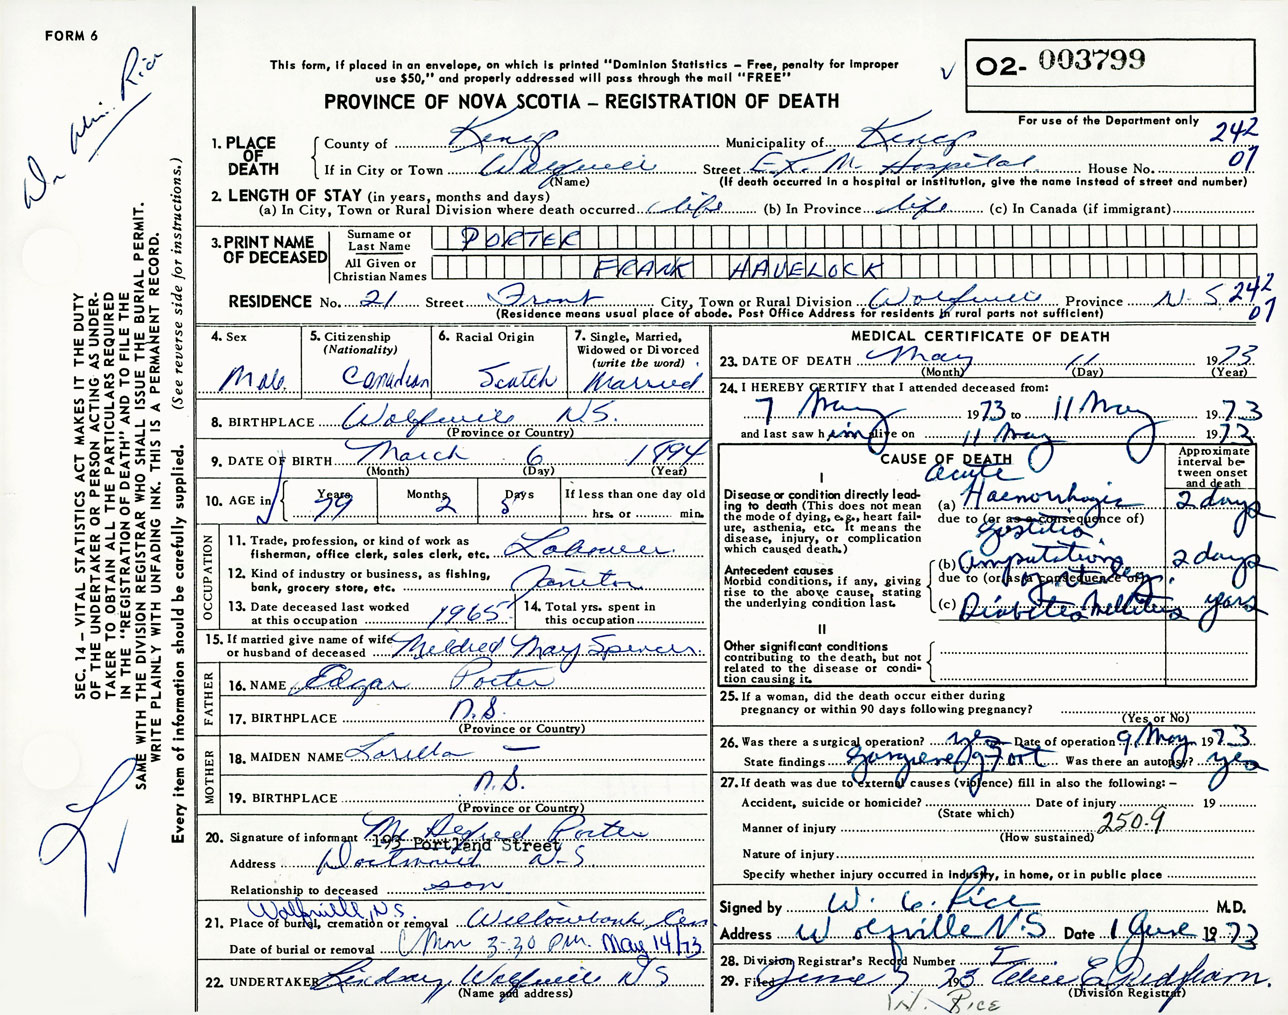 FORM 6
This form, if placed in an envelope, on which is printed "Dominion Statistics – Free, penalty for improper
use $50," and properly addressed will pass through the mail "FREE"
PROVINCE OF NOVA SCOTIA – REGISTRATION OF DEATH
O2- 003799
For use of the Department only
Rice
SEC. 14 – VITAL STATISTICS ACT MAKES IT THE DUTY
OF THE UNDERTAKER OR PERSON ACTING AS UNDER-
TAKER TO OBTAIN ALL THE PARTICULARS REQUIRED
IN THE "REGISTRATION OF DEATH" AND TO FILE THE
SAME WITH THE DIVISION REGISTRAR WHO SHALL ISSUE THE BURIAL PERMIT.
WRITE PLAINLY WITH UNFADING INK. THIS IS A PERMANENT RECORD.
Every item of information should be carefully supplied. (See reverse side for instructions.)
1. PLACE OF DEATH
County of Kings Municipality of Kings 242
If in City or Town Wolfville Street E.K. M. Hospital House No. 07
(Name) (If death occurred in a hospital or institution, give the name instead of street and number)
2. LENGTH OF STAY (in years, months and days)
(a) In City, Town or Rural Division where death occurred life (b) In Province life (c) In Canada (if immigrant)
3. PRINT NAME OF DECEASED
Surname or Last Name PORTER
All Given or Christian Names FRANK HAVELOCK
RESIDENCE No. 21 Street Front City, Town or Rural Division Wolfville Province N.S. 242 07
(Residence means usual place of abode. Post Office Address for residents in rural parts not sufficient)
4. Sex Male
5. Citizenship (Nationality) Canadian
6. Racial Origin Scotch
7. Single, Married, Widowed or Divorced (write the word) Married
8. BIRTHPLACE Wolfville N.S.
(Province or Country)
9. DATE OF BIRTH March 6 1894
(Month) (Day) (Year)
10. AGE in Years 79 Months 2 Days 5 If less than one day old hrs. or min.
OCCUPATION
11. Trade, profession, or kind of work as
fisherman, office clerk, sales clerk, etc. Labourer
12. Kind of industry or business, as fishing,
bank, grocery store, etc. Janitor
13. Date deceased last worked
at this occupation 1965
14. Total yrs. spent in
this occupation
15. If married give name of wife
or husband of deceased Mildred May Spencer
FATHER
16. NAME Edgar Porter
17. BIRTHPLACE N.S.
(Province or Country)
MOTHER
18. MAIDEN NAME Lorella –
19. BIRTHPLACE N.S.
(Province or Country)
20. Signature of informant Mr Porter
193 Portland Street
Address Dartmouth N-S
Relationship to deceased son
Wolfville, N.S.
21. Place of burial, cremation or removal Willowbank Cem
Date of burial or removal (Mon 3-30 P.M. May 14/73
22. UNDERTAKER Lindsay Wolfville N S
(Name and address)
MEDICAL CERTIFICATE OF DEATH
23. DATE OF DEATH May 11 1973
(Month) (Day) (Year)
24. I HEREBY CERTIFY that I attended deceased from:
7 May 1973 to 11 May 1973
and last saw him alive on 11 May 1973
CAUSE OF DEATH
Approximate interval between onset and death
I
Disease or condition directly lead-
ing to death (This does not mean
the mode of dying, e.g., heart fail-
ure, asthenia, etc. It means the
disease, injury, or complication
which caused death.)
Acute
(a) Haemorrhagic 2 days
due to (or as a consequence of)
Antecedent causes
Morbid conditions, if any, giving
rise to the above cause, stating
the underlying condition last.
(b) Amputation 2 days
due to (or as a consequence of)
(c) Diabetes Mellitus years
II
Other significant conditions
contributing to the death, but not
related to the disease or condi-
tion causing it.
25. If a woman, did the death occur either during
pregnancy or within 90 days following pregnancy?
(Yes or No)
26. Was there a surgical operation? yes Date of operation 9 May 1973
State findings gangrene of foot Was there an autopsy? yes
27. If death was due to external causes (violence) fill in also the following: –
Accident, suicide or homicide? Date of injury 19
(State which)
Manner of injury 250.9
(How sustained)
Nature of injury
Specify whether injury occurred in industry, in home, or in public place
Signed by W. C. Rice M.D.
Address Wolfville N.S Date 1 June 1973
28. Division Registrar's Record Number
29. Filed June 7 1973
(Division Registrar)
W. RICE